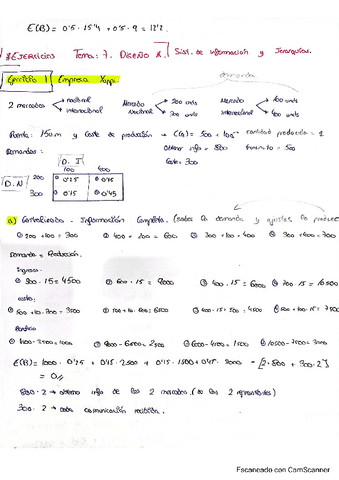 E(B) = 0'5 · 15'4 + 0'5 · 9 = 12'2
* EJERCICIOS Tema: 7. Diseño X. Sist. de información y Jerarquías.
Ejercicio 1 Empresa Xappi
demanda
2 mercados nacional internacional
Mercado nacional 200 unds 300 unds
Mercado internacional 100 unds 400 unds
150m y coste de producción → C(q) = 500 + 10q cantidad producida = q
Demandas: Obtener info = 800
Coste: 300
D. I
100 400
D.N 200 ① 0'25 ② 0'15
300 ③ 0'15 ④ 0'45
a) Centralizado - Información Completa. (sabes la demanda y ajustas lo produce
① 200 + 100 = 300 ② 400 + 200 = 600 ③ 300 + 100 = 400 ④ 300 + 400 = 700
Demanda = Producción.
Ingresos.
① 300 · 15 = 4500 ② 600 · 15 = 9000 ③ 400 · 15 = 6000 ④ 700 · 15 = 10500
costes:
① 500 + 10 · 300 = 3500 ② 500 + 10 · 600 = 6500 ③ 400 · 15 + 500 = 4500 ④ 500 + 10 · 700 = 7500
Beneficio
① 4500 - 3500 = 1000 ② 9000 - 6500 = 2500 ③ 6000 - 4500 = 1500 ④ 10500 - 7500 = 3000
E(B) = 1000 · 0'25 + 0'15 · 2500 + 0'15 · 1500 + 0'45 · 3000 - [2 · 800 + 300 · 2]
= 0//
800 · 2 → obtener info de los 2 mercados. (o los 2 representantes)
300 · 2 → cada comunicación recibida.
Escaneado con CamScanner